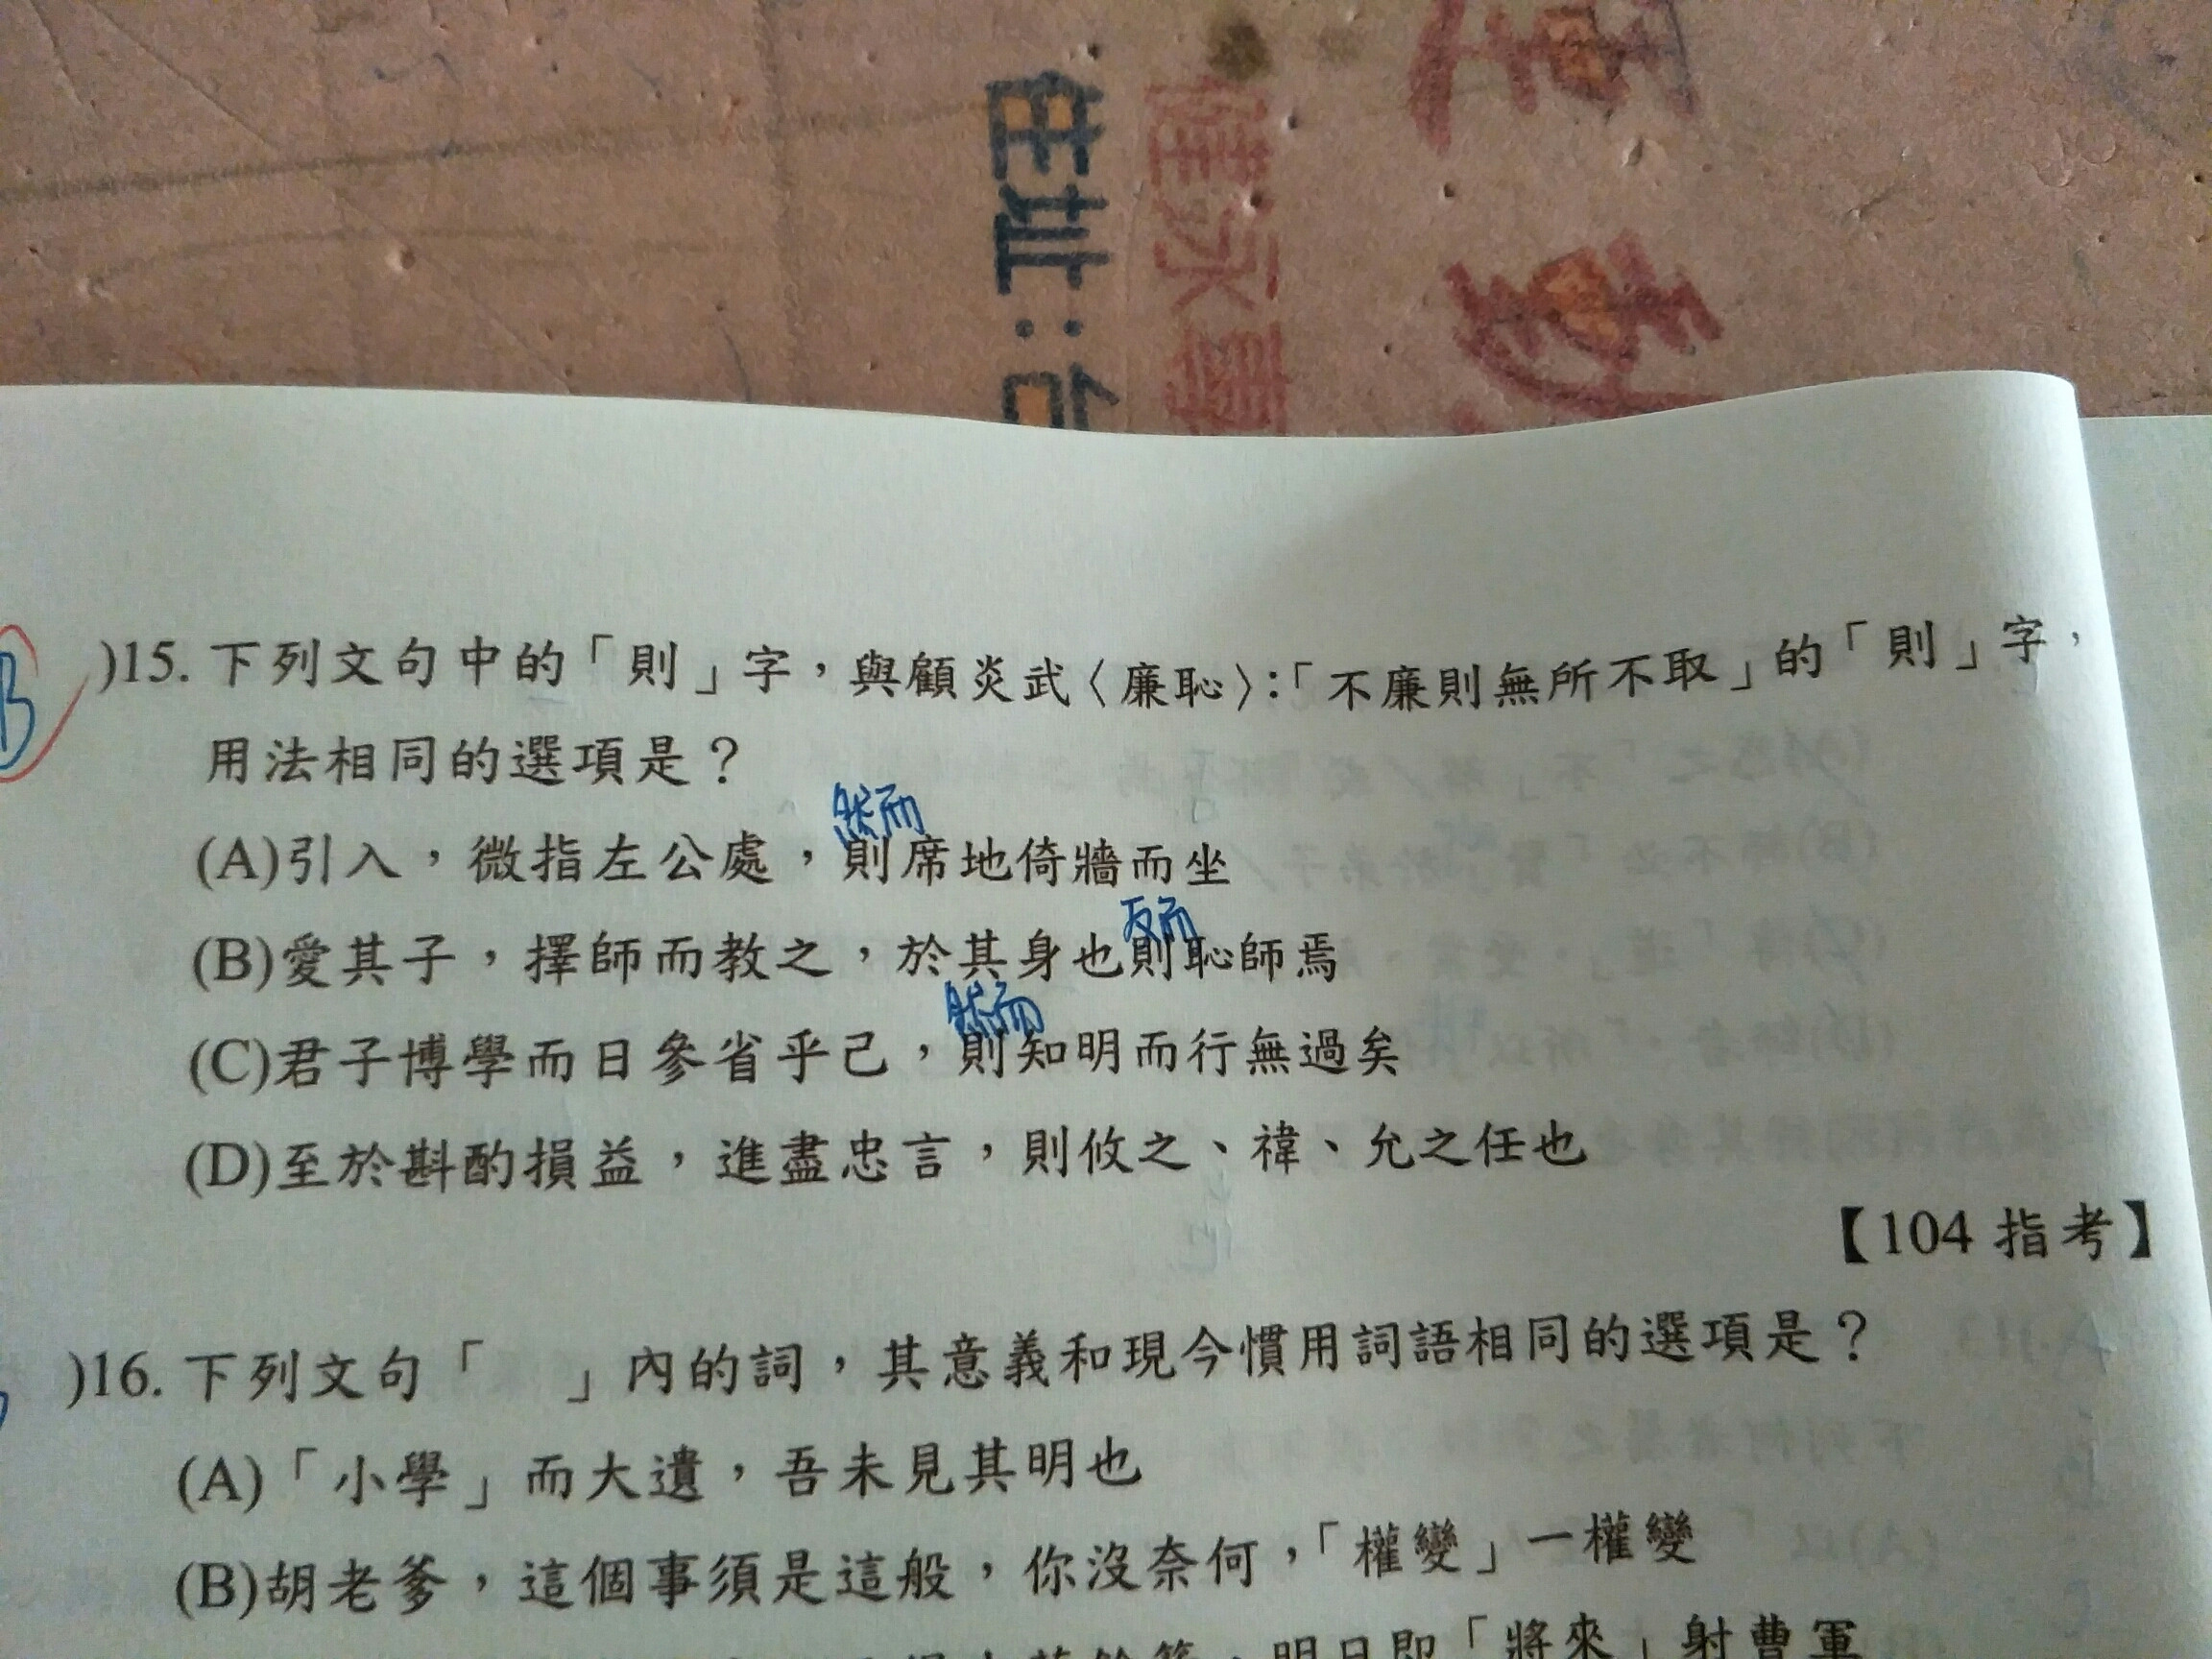 住址：台
健永事
B
)15. 下列文句中的「則」字，與顧炎武〈廉恥〉：「不廉則無所不取」的「則」字，
用法相同的選項是？
然而
(A)引入，微指左公處，則席地倚牆而坐
反而
(B)愛其子，擇師而教之，於其身也則恥師焉
然而
(C)君子博學而日參省乎己，則知明而行無過矣
(D)至於斟酌損益，進盡忠言，則攸之、禕、允之任也
【104 指考】
)16. 下列文句「　」內的詞，其意義和現今慣用詞語相同的選項是？
(A)「小學」而大遺，吾未見其明也
(B)胡老爹，這個事須是這般，你沒奈何，「權變」一權變
明日即「將來」射曹軍